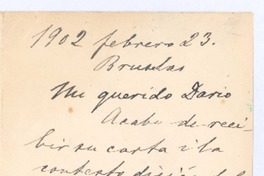 1902 febrero 23.
Bruselas
Mi querido Dario
Acabo de reci
bir su carta i la
contesto